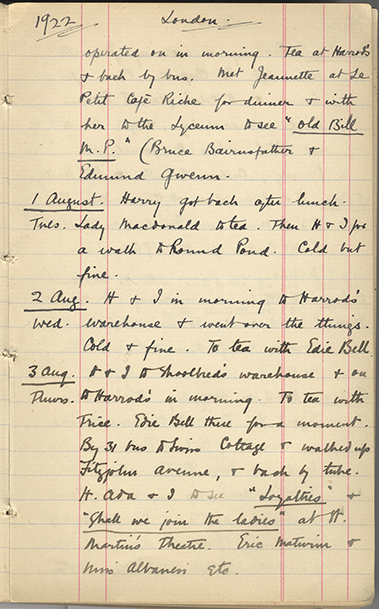 1922 London.
operated on in morning. Tea at Harrod's
& back by bus. Met Jeannette at Le
Petit Café Riche for dinner & with
her to the Lyceum to see "Old Bill
M.P." (Bruce Bairnsfather &
Edmund Gwenn.
1 August. Harry got back after lunch.
Tues. Lady Macdonald to tea. Then H & I for
a walk to Round Pond. Cold but
fine.
2 Aug. H & I in morning to Harrod's
Wed. warehouse & went over the things.
Cold & fine. To tea with Edie Bell
3 Aug. & I to Shoolbred's warehouse & on
Thurs. to Harrod's in morning. To tea with
Trice. Edie Bell there for a moment.
By 31 bus to Swiss Cottage & walked up
Fitzjohn Avenue, & back by tube.
H. Ada & I to see "Loyalties" &
"Shall we join the ladies" at St.
Martin's Theatre. Eric Maturin &
Miss Albanesi etc.